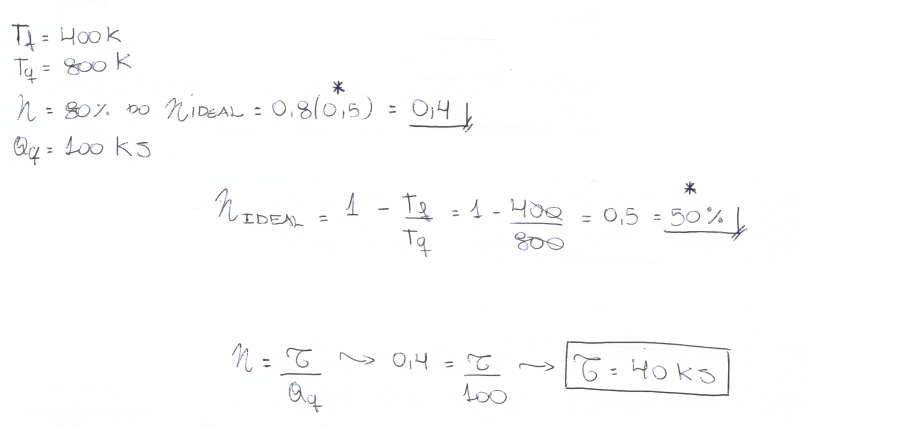 Tf = 400K
Tq = 800K
η = 80% DO ηIDEAL = 0,8(0,5)* = 0,4
Qq = 100 KJ
ηIDEAL = 1 - Tf/Tq = 1 - 400/800 = 0,5 = 50%*
η = τ/Qq ~> 0,4 = τ/100 ~> τ = 40 KJ